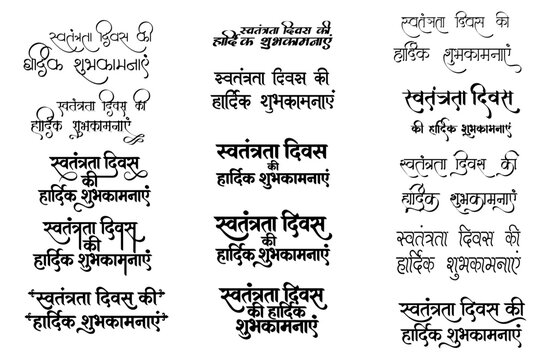 स्वतंत्रता दिवस की
हार्दिक शुभकामनाएं
स्वतंत्रता दिवस की
हार्दिक शुभकामनाएं
स्वतंत्रता दिवस
की
हार्दिक शुभकामनाएं
स्वतंत्रता दिवस
की
हार्दिक शुभकामनाएं
स्वतंत्रता दिवस की
हार्दिक शुभकामनाएं
स्वतंत्रता दिवस की
हार्दिक शुभकामनाएं
स्वतंत्रता दिवस की
हार्दिक शुभकामनाएं
स्वतंत्रता दिवस
की
हार्दिक शुभकामनाएं
स्वतंत्रता दिवस
की
हार्दिक शुभकामनाएं
स्वतंत्रता दिवस
की हार्दिक
शुभकामनाएं
स्वतंत्रता दिवस की
हार्दिक शुभकामनाएं
स्वतंत्रता दिवस
की हार्दिक शुभकामनाएं
स्वतंत्रता दिवस की
हार्दिक शुभकामनाएं
स्वतंत्रता दिवस की
हार्दिक शुभकामनाएं
स्वतंत्रता दिवस की
हार्दिक शुभकामनाएं